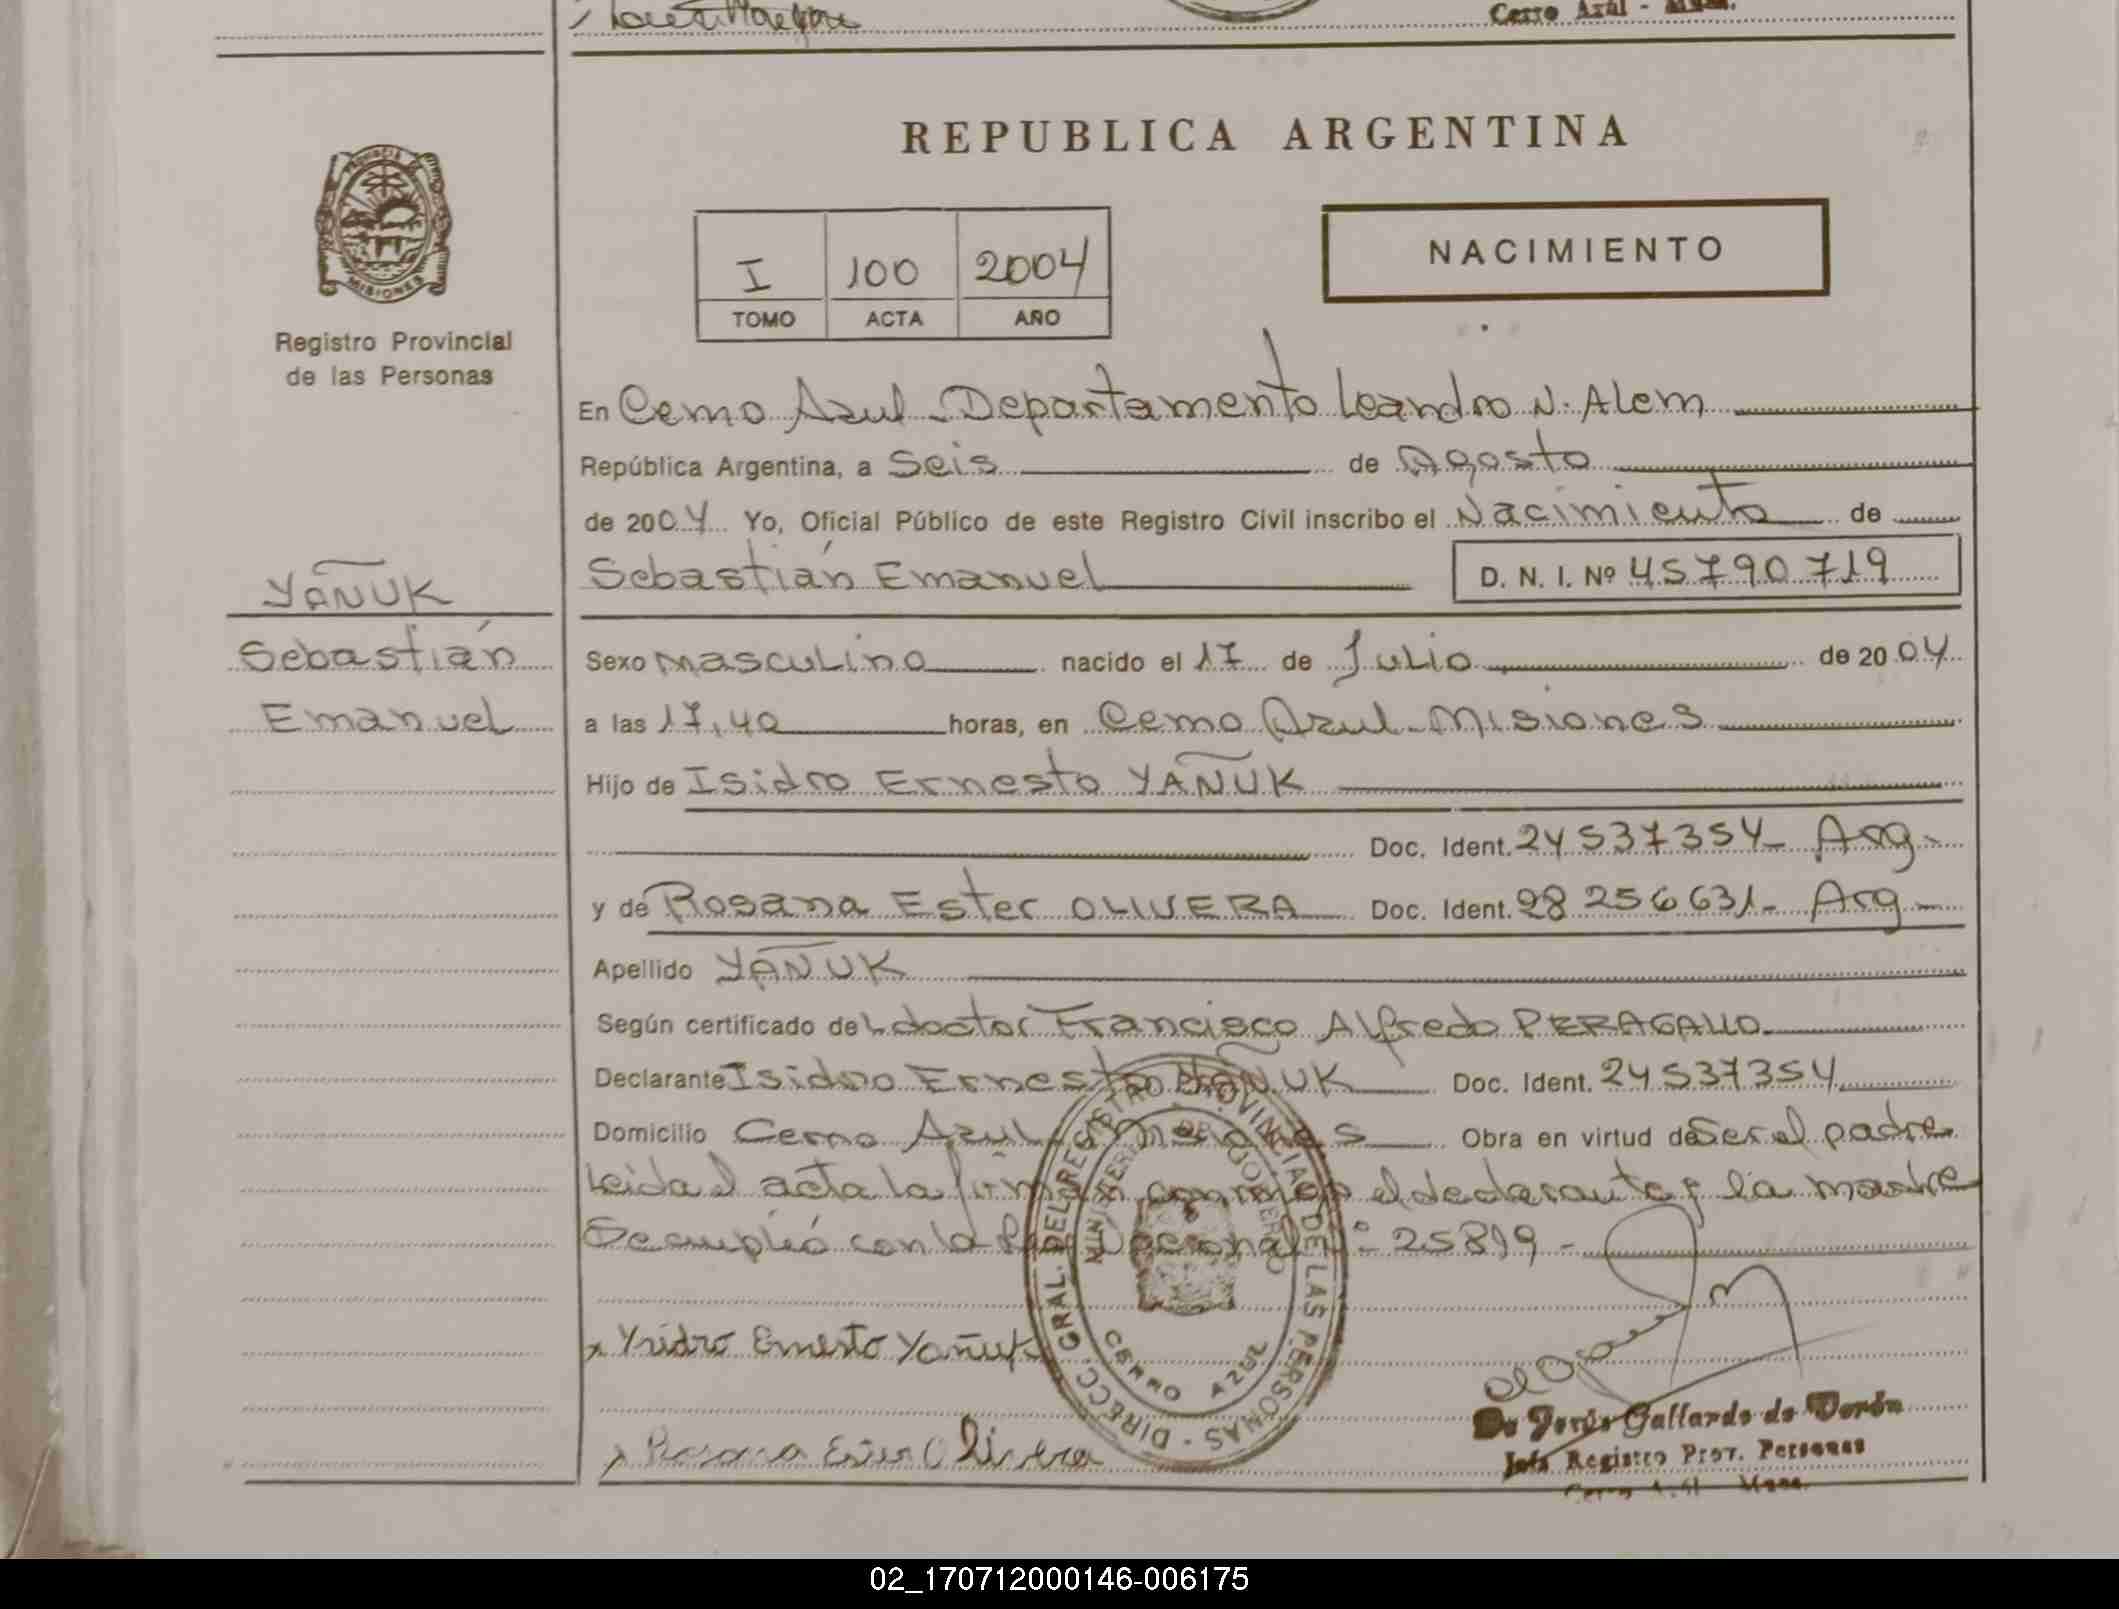 Cerro Azul - Mnes.
REPUBLICA ARGENTINA
PROVINCIA
MISIONES
Registro Provincial
de las Personas
I 100 2004
TOMO ACTA AÑO
NACIMIENTO
En Cerro Azul - Departamento Leandro N. Alem
República Argentina, a Seis de Agosto
de 2004 Yo, Oficial Público de este Registro Civil inscribo el Nacimiento de
Sebastián Emanuel D. N. I. Nº 45790719
YAÑUK
Sebastián
Emanuel
Sexo masculino nacido el 17 de Julio de 2004
a las 17,40 horas, en Cerro Azul - Misiones
Hijo de Isidro Ernesto YAÑUK
Doc. Ident. 24537354- Arg-
y de Rosana Ester OLIVERA Doc. Ident. 28256631- Arg-
Apellido YAÑUK
Según certificado del doctor Francisco Alfredo PERAGALLO
Declarante Isidro Ernesto YAÑUK Doc. Ident. 24537354
Domicilio Cerro Azul - Misiones Obra en virtud de Ser el padre
Leida el acta la firman conmigo el declarante y la madre
Se cumplió con la Nacional Nº 25819 -
DIRECC. GRAL. DEL REGISTRO PROVINCIAL DE LAS PERSONAS
MINISTERIO DE GOBIERNO
CERRO AZUL
x Ysidro Ernesto Yañuk
x Rosana Ester Olivera
De Jesús Gallardo de Verón
Jefa Registro Prov. Personas
Cerro Azul - Mnes.
02_170712000146-006175